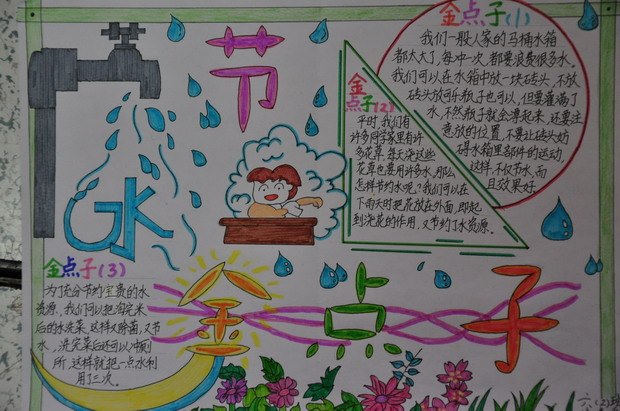 节
水
金点子
金点子(1)
我们一般人家的马桶水箱
都太大了,每冲一次都要浪费很多水。
我们可以在水箱中放一块砖头,不放
砖头放可乐瓶子也可以,但要灌满了
水,不然瓶子就会漂起来,还要注
意放的位置,不要让砖头妨
碍水箱里部件的运动,
这样,不仅节水,而
且效果好。
金
点
子(2)
平时,我们有
许多同学家里有许
多花草,每天浇这些
花草也要用许多水,那么
怎样节约水呢?我们可以在
下雨天时把花放在外面,即起
到浇花的作用,又节约了水资源。
金点子(3)
为了充分节约宝贵的水
资源,我们可以把淘完米
后的水洗菜,这样又除菌,又节
水,洗完菜后还可以冲厕
所,这样就把一点水利
用了三次。
六(2)班